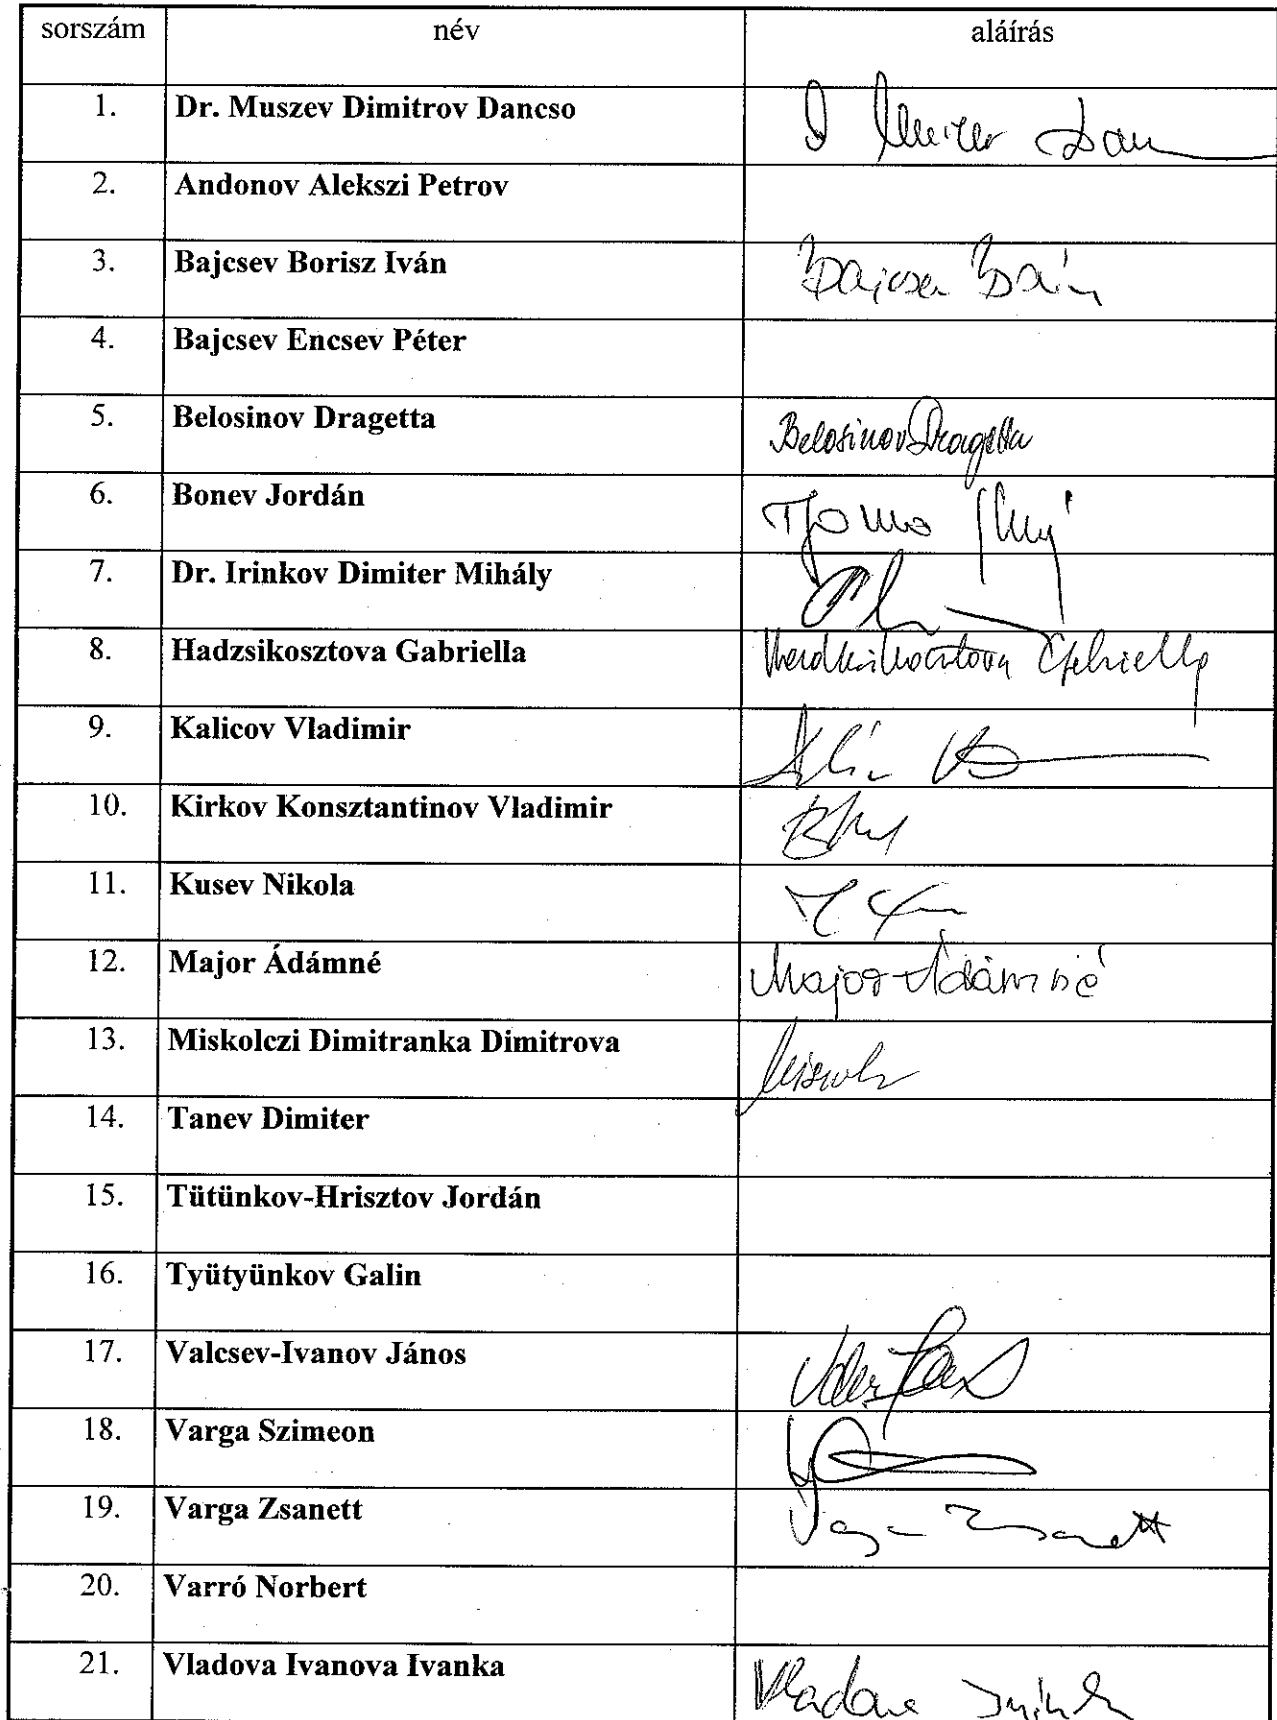 sorszám név aláírás
1. Dr. Muszev Dimitrov Dancso
2. Andonov Alekszi Petrov
3. Bajcsev Borisz Iván
4. Bajcsev Encsev Péter
5. Belosinov Dragetta Belosinov Dragetta
6. Bonev Jordán
7. Dr. Irinkov Dimiter Mihály
8. Hadzsikosztova Gabriella Hadzsikosztova Gabriella
9. Kalicov Vladimir
10. Kirkov Konsztantinov Vladimir
11. Kusev Nikola
12. Major Ádámné Major Ádámné
13. Miskolczi Dimitranka Dimitrova
14. Tanev Dimiter
15. Tütünkov-Hrisztov Jordán
16. Tyütyünkov Galin
17. Valcsev-Ivanov János
18. Varga Szimeon
19. Varga Zsanett Varga Zsanett
20. Varró Norbert
21. Vladova Ivanova Ivanka